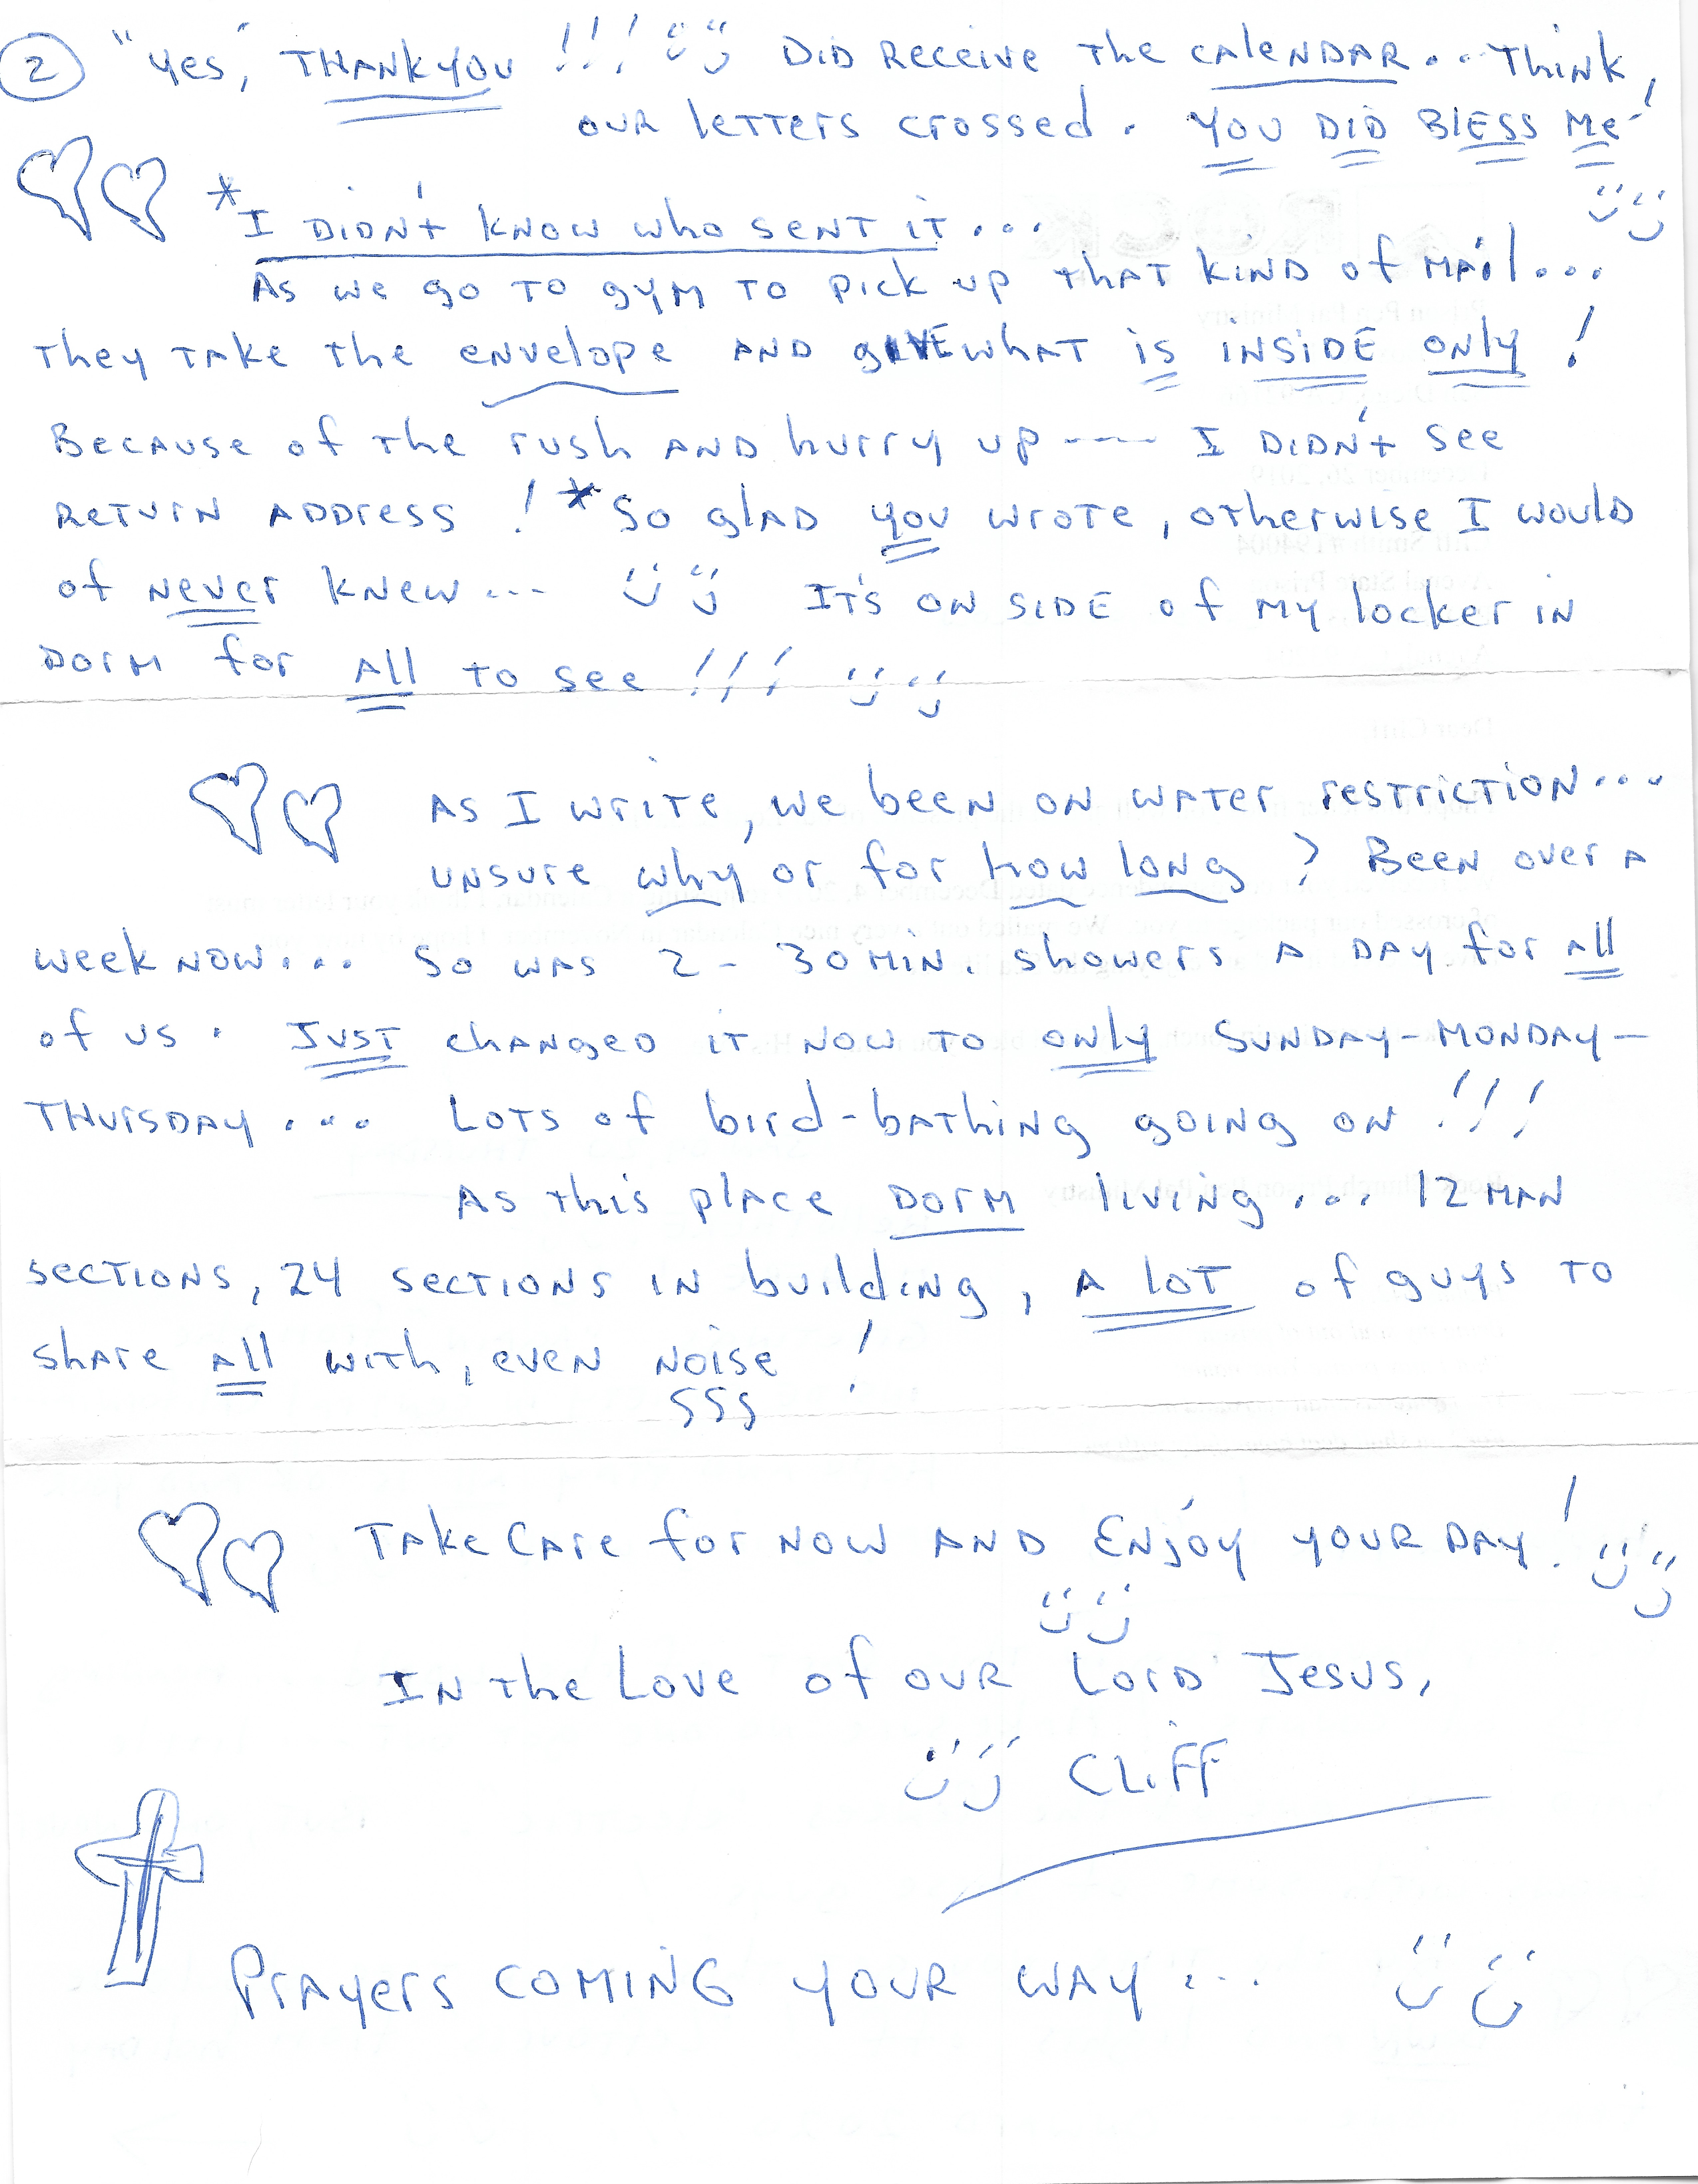 2 "Yes," THANK YOU !!! DID RECEIVE THE CALENDAR... THINK
OUR LETTERS CROSSED. YOU DID BLESS ME!
*I DIDN'T KNOW WHO SENT IT...
AS WE GO TO GYM TO PICK UP THAT KIND OF MAIL...
THEY TAKE THE ENVELOPE AND GIVE WHAT IS INSIDE ONLY!
BECAUSE OF THE RUSH AND HURRY UP ---- I DIDN'T SEE
RETURN ADDRESS! *SO GLAD YOU WROTE, OTHERWISE I WOULD
OF NEVER KNEW... IT'S ON SIDE OF MY LOCKER IN
DORM FOR ALL TO SEE !!!
AS I WRITE, WE BEEN ON WATER RESTRICTION....
UNSURE WHY OR FOR HOW LONG? BEEN OVER A
WEEK NOW.... SO WAS 2 - 30 MIN. SHOWERS A DAY FOR ALL
OF US. JUST CHANGED IT NOW TO ONLY SUNDAY-MONDAY-
THURSDAY.... LOTS OF BIRD-BATHING GOING ON !!!
AS THIS PLACE DORM LIVING... 12 MAN
SECTIONS, 24 SECTIONS IN BUILDING, A LOT OF GUYS TO
SHARE ALL WITH, EVEN NOISE!
TAKE CARE FOR NOW AND ENJOY YOUR DAY!
IN THE LOVE OF OUR LORD JESUS,
CLIFF
PRAYERS COMING YOUR WAY...